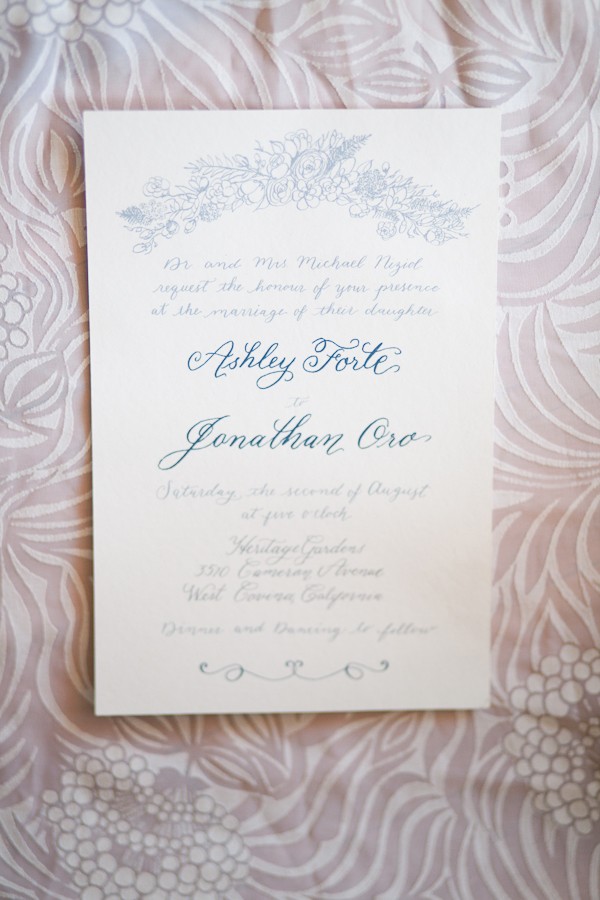 Dr. and Mrs Michael Niziol
request the honour of your presence
at the marriage of their daughter
Ashley Forte
to
Jonathan Oro
Saturday, the second of August
at five o'clock
Heritage Gardens
3510 Cameran Avenue
West Covina, California
Dinner and Dancing to follow